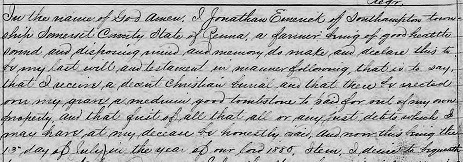 In the name of God Amen. I Jonathan Emerick of Southampton town-
ship Somerset County State of Penna, a farmer being of good health
sound and disposing mind and memory do make and declare this to
be my last will and testament in manner following, that is to say,
that I receive a decent Christian burial and that there be erected
on my grave a medium good tombstone to be paid for out of my own
property, and that first of all that all or any just debts which I
may have at my decease be honestly paid, and now this being the
13th day of July in the year of our lord 1880, Item, I desire to bequeath